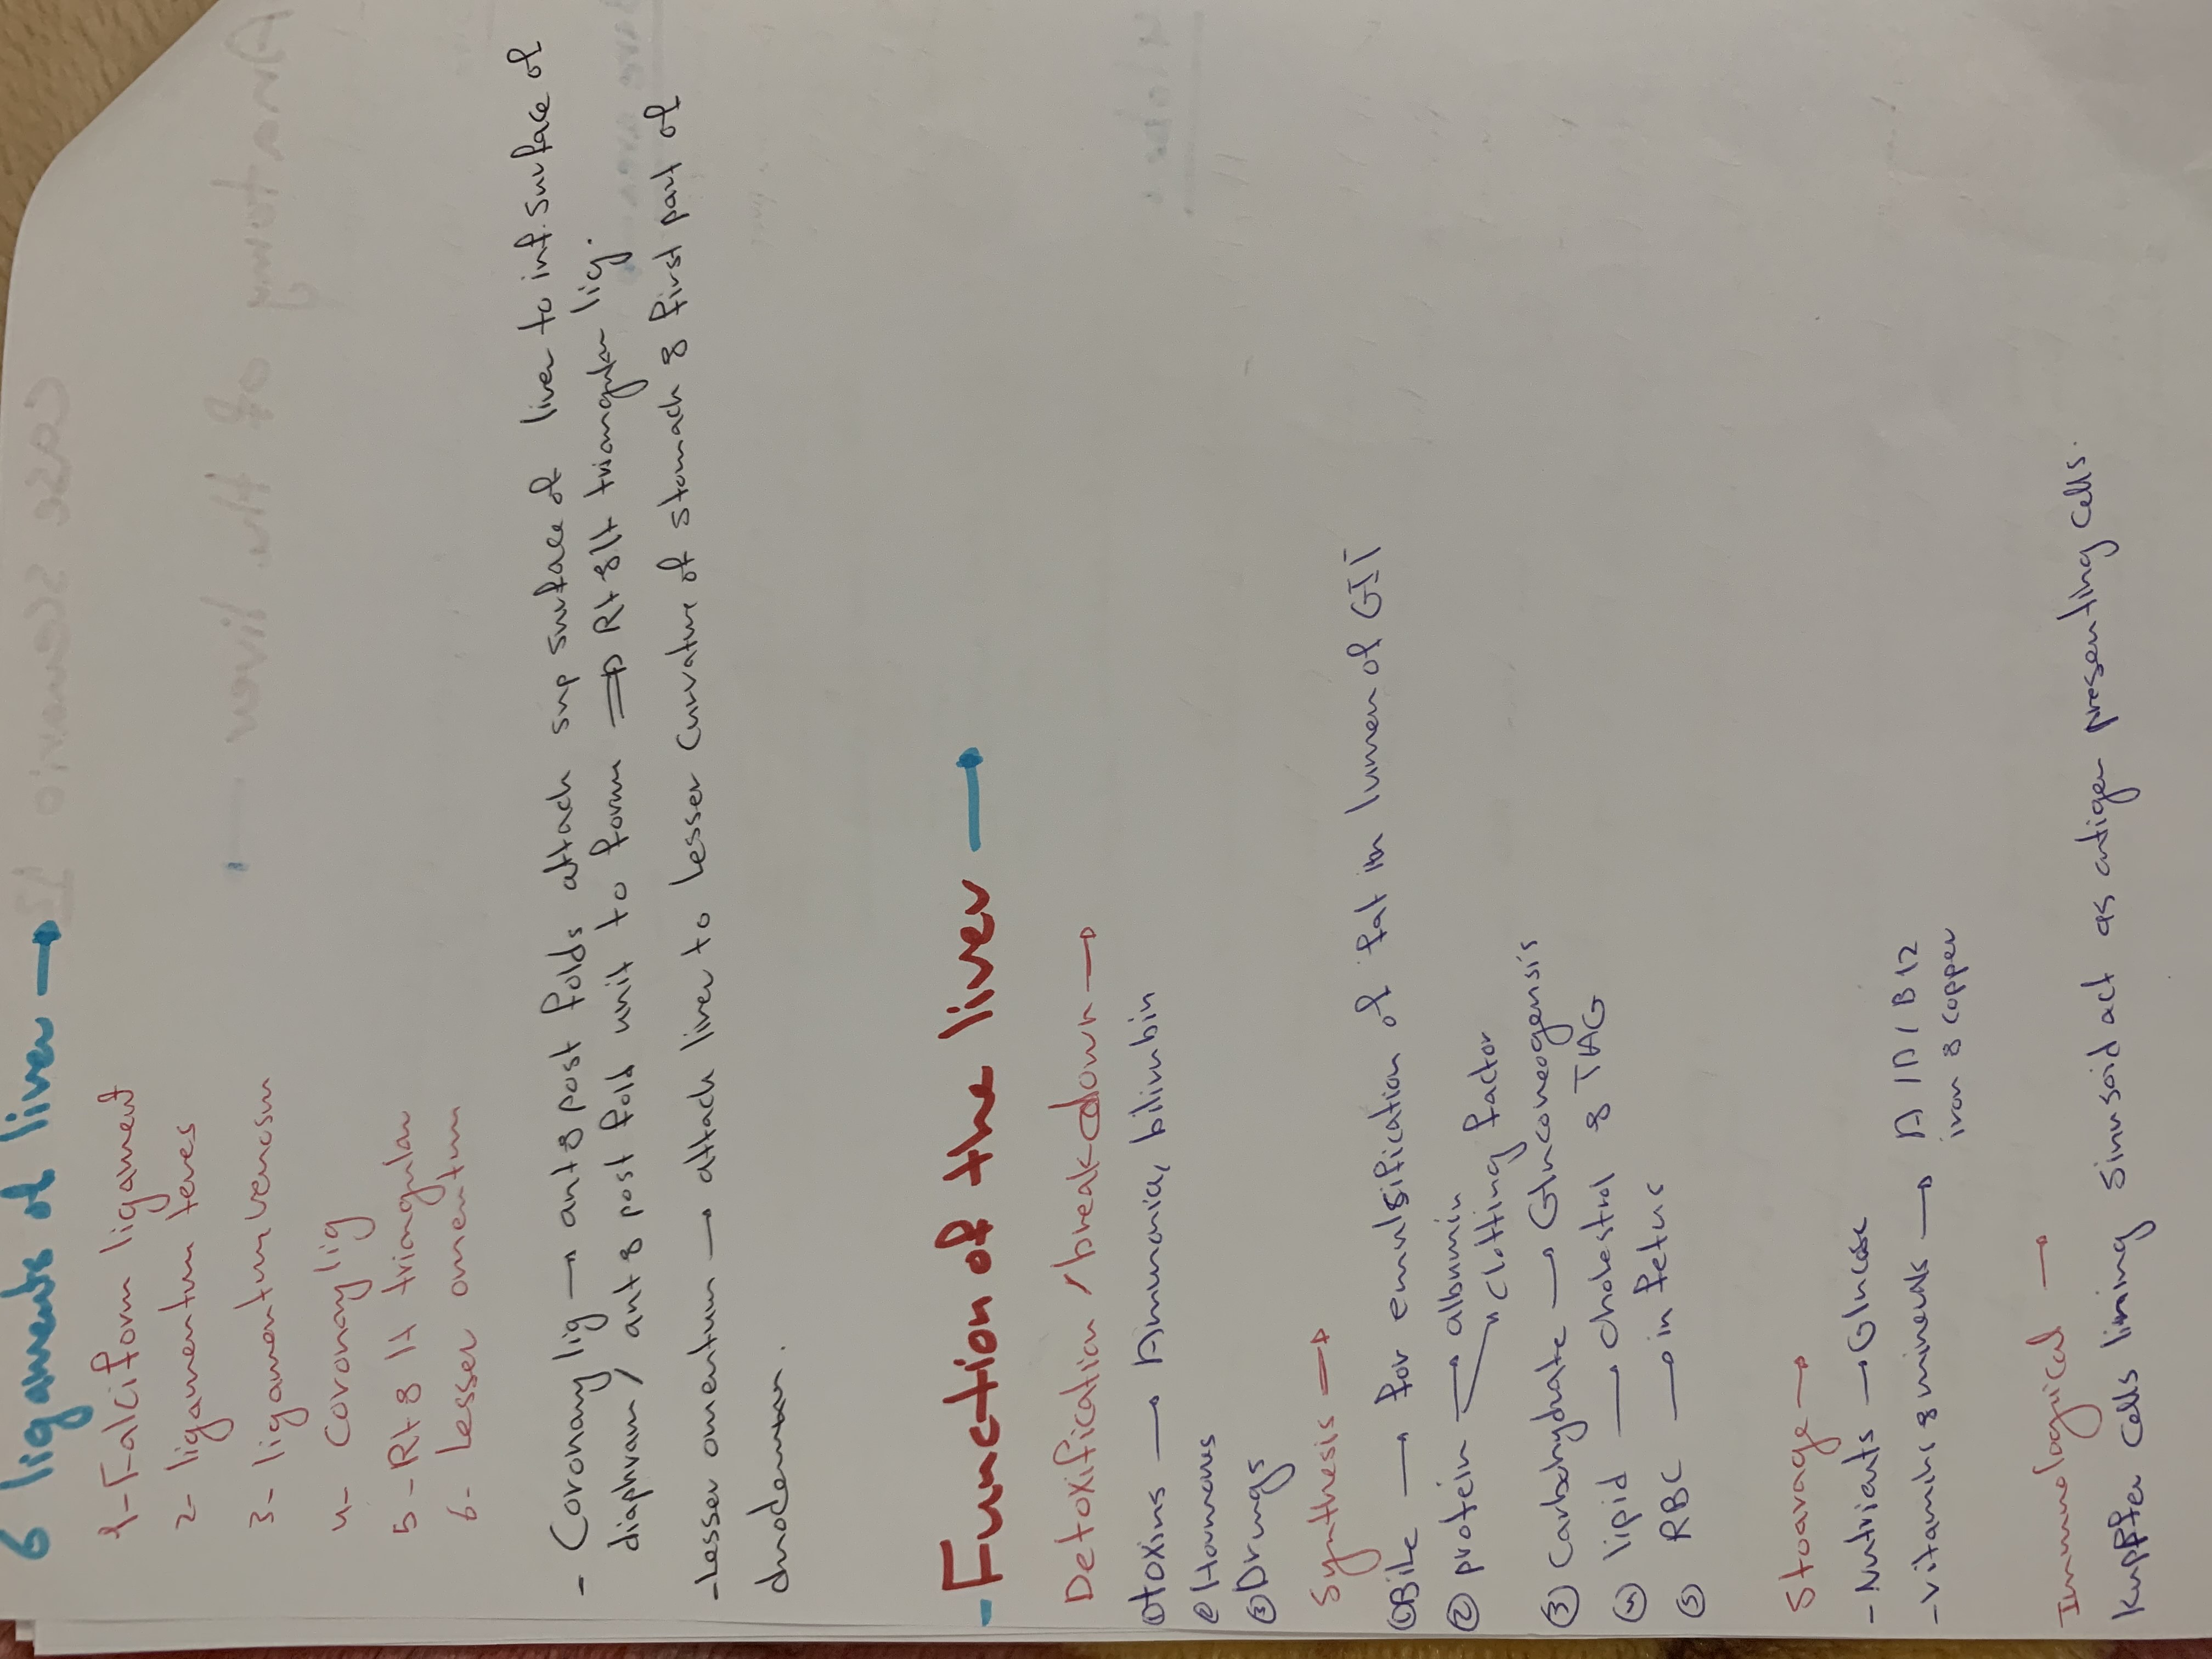 6 ligaments of liver →
1- Falciform ligament
2- ligamentum teres
3- ligamentum venosum
4- Coronary lig
5- Rt & lt triangular
6- Lesser omentum
- Coronary lig → ant & post folds attach sup surface of liver to inf. surface of
diaphram / ant & post fold unit to form ⇒ Rt & lt triangular lig.
- Lesser omentum → attach liver to lesser curvature of stomach & first part of
duodenum.
- Function of the liver →
Detoxification / breakdown →
① toxins → Ammonia, bilirubin
② Hormones
③ Drugs
Synthesis ⇒
① Bile → for emulsification of fat in lumen of GIT
② protein → albumin
→ clotting factor
③ Carbohydrate → Gluconeogensis
④ lipid → cholestrol & TAG
⑤ RBC → in fetus
Stoarage →
- Nutrients → Glucose
- vitamins & minerals → A / D / B12
iron & copper
Immulogical →
Kupffer cells lining sinusoid act as antigen presenting cells.